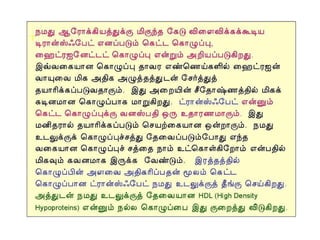 நமது ஆரோக்கியத்துக்கு மிகுந்த கேடு விளைவிக்கக்கூடிய
டிரான்ஸ்ஃபேட் எனப்படும் கெட்ட கொழுப்பு,
ஹைட்ரஜனேட்டட் கொழுப்பு என்றும் அறியப்படுகிறது.
இவ்வகையான கொழுப்பு தாவர எண்ணெய்களில் ஹைட்ரஜன்
வாயுவை மிக அதிக அழுத்தத்துடன் சேர்த்துத்
தயாரிக்கப்படுவதாகும். இது அறையின் சீதோஷ்ணத்தில் மிகக்
கடினமான கொழுப்பாக மாறுகிறது. ட்ரான்ஸ்ஃபேட் என்னும்
கெட்ட கொழுப்புக்கு வனஸ்பதி ஒரு உதாரணமாகும். இது
மனிதரால் தயாரிக்கப்படும் செயற்கையான ஒன்றாகும். நமது
உடலுக்குக் கொழுப்புச்சத்து தேவைப்படும்போது எந்த
வகையான கொழுப்புச் சத்தை நாம் உட்கொள்கிறோம் என்பதில்
மிகவும் கவனமாக இருக்க வேண்டும். இரத்தத்தில்
கொழுப்பின் அளவை அதிகரிப்பதன் மூலம் கெட்ட
கொழுப்பான ட்ரான்ஸ்ஃபேட் நமது உடலுக்குத் தீங்கு செய்கிறது.
அத்துடன் நமது உடலுக்குத் தேவையான HDL (High Density
Hypoproteins) என்னும் நல்ல கொழுப்பை இது குறைத்து விடுகிறது.